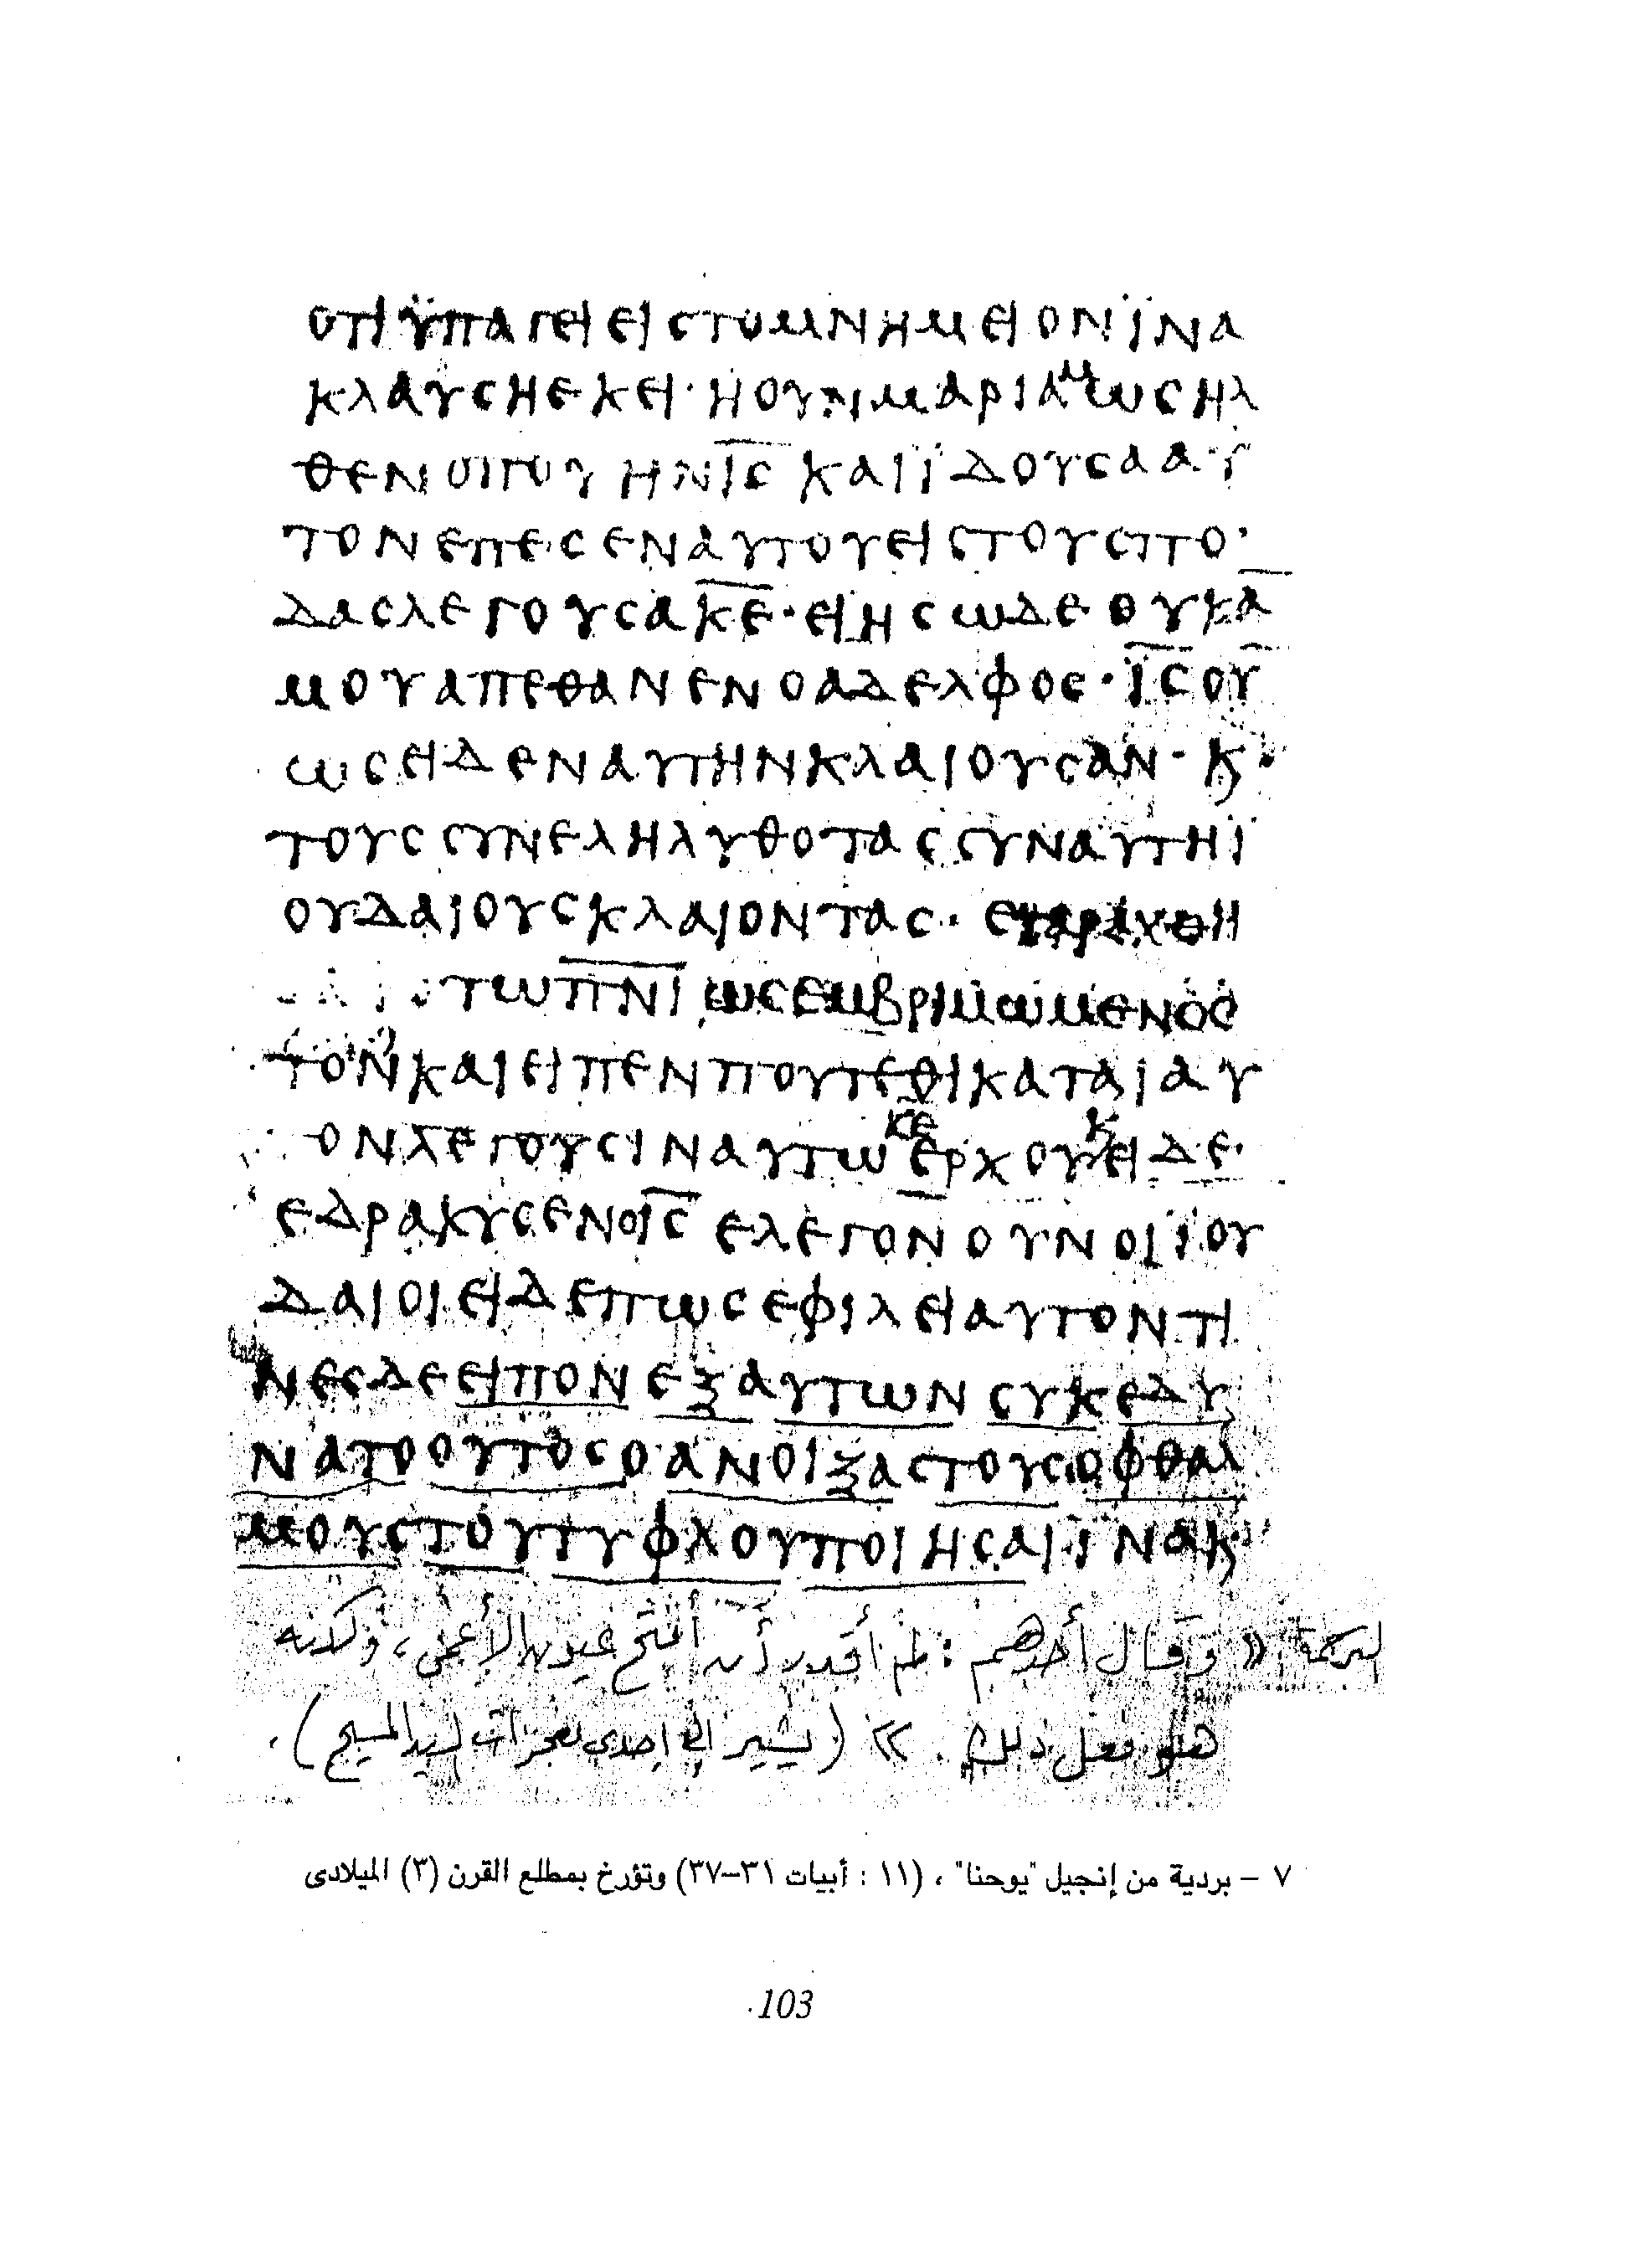 ΟΤΙ ΫΠΑΓΕΙ ΕΙΣ ΤΟ ΜΝΗΜΕΙΟΝ ΪΝΑ
ΚΛΑΥΣΗ ΕΚΕΙ· Η ΟΥΝ ΜΑΡΙΑΜ ΩΣ ΗΛ
ΘΕΝ ΟΠΟΥ ΗΝ ΙΣ ΚΑΙ ΪΔΟΥΣΑ ΑΥ
ΤΟΝ ΕΠΕΣΕΝ ΑΥΤΟΥ ΕΙΣ ΤΟΥΣ ΠΟ
ΔΑΣ ΛΕΓΟΥΣΑ ΚΕ· ΕΙ ΗΣ ΩΔΕ ΟΥΚ Α
ΜΟΥ ΑΠΕΘΑΝΕΝ Ο ΑΔΕΛΦΟΣ· ΪΣ ΟΥ
ΩΣ ΕΙΔΕΝ ΑΥΤΗΝ ΚΛΑΙΟΥΣΑΝ· Κ
ΤΟΥΣ ΣΥΝΕΛΗΛΥΘΟΤΑΣ ΣΥΝ ΑΥΤΗ Ϊ
ΟΥΔΑΙΟΥΣ ΚΛΑΙΟΝΤΑΣ· ΕΤΑΡΑΧΘΗ
ΤΩ ΠΝΙ ΩΣ ΕΜΒΡΙΜΩΜΕΝΟΣ
ΤΟΝ ΚΑΙ ΕΙΠΕΝ ΠΟΥ ΤΕΘΙΚΑΤΑΙ ΑΥ
ΟΝ ΛΕΓΟΥΣΙΝ ΑΥΤΩ ΚΕ ΕΡΧΟΥ Κ ΕΙΔΕ·
ΕΔΡΑΚΥΣΕΝ Ο ΙΣ ΕΛΕΓΟΝ ΟΥΝ ΟΙ ΪΟΥ
ΔΑΙΟΙ ΕΙΔΕ ΠΩΣ ΕΦΙΛΕΙ ΑΥΤΟΝ ΤΙ
ΝΕΣ ΔΕ ΕΙΠΟΝ ΕΞ ΑΥΤΩΝ ΣΥΚ ΕΔΥ
ΝΑΤΟ ΟΥΤΟΣ Ο ΑΝΟΙΞΑΣ ΤΟΥΣ ΟΦΘΑΛ
ΜΟΥΣ ΤΟΥ ΤΥΦΛΟΥ ΠΟΙΗΣΑΙ ΪΝΑ Κ
الترجمة « وقال أحدهم : لم أقدر أن أفتح عيون الأعمى ، ولكنه
هو فعل ذلك . » (يشير إلى إحدى معجزات السيد المسيح) .
٧ – بردية من إنجيل "يوحنا" ، (١١ : أبيات ٣١–٣٧) وتؤرخ بمطلع القرن (٣) الميلادى
103